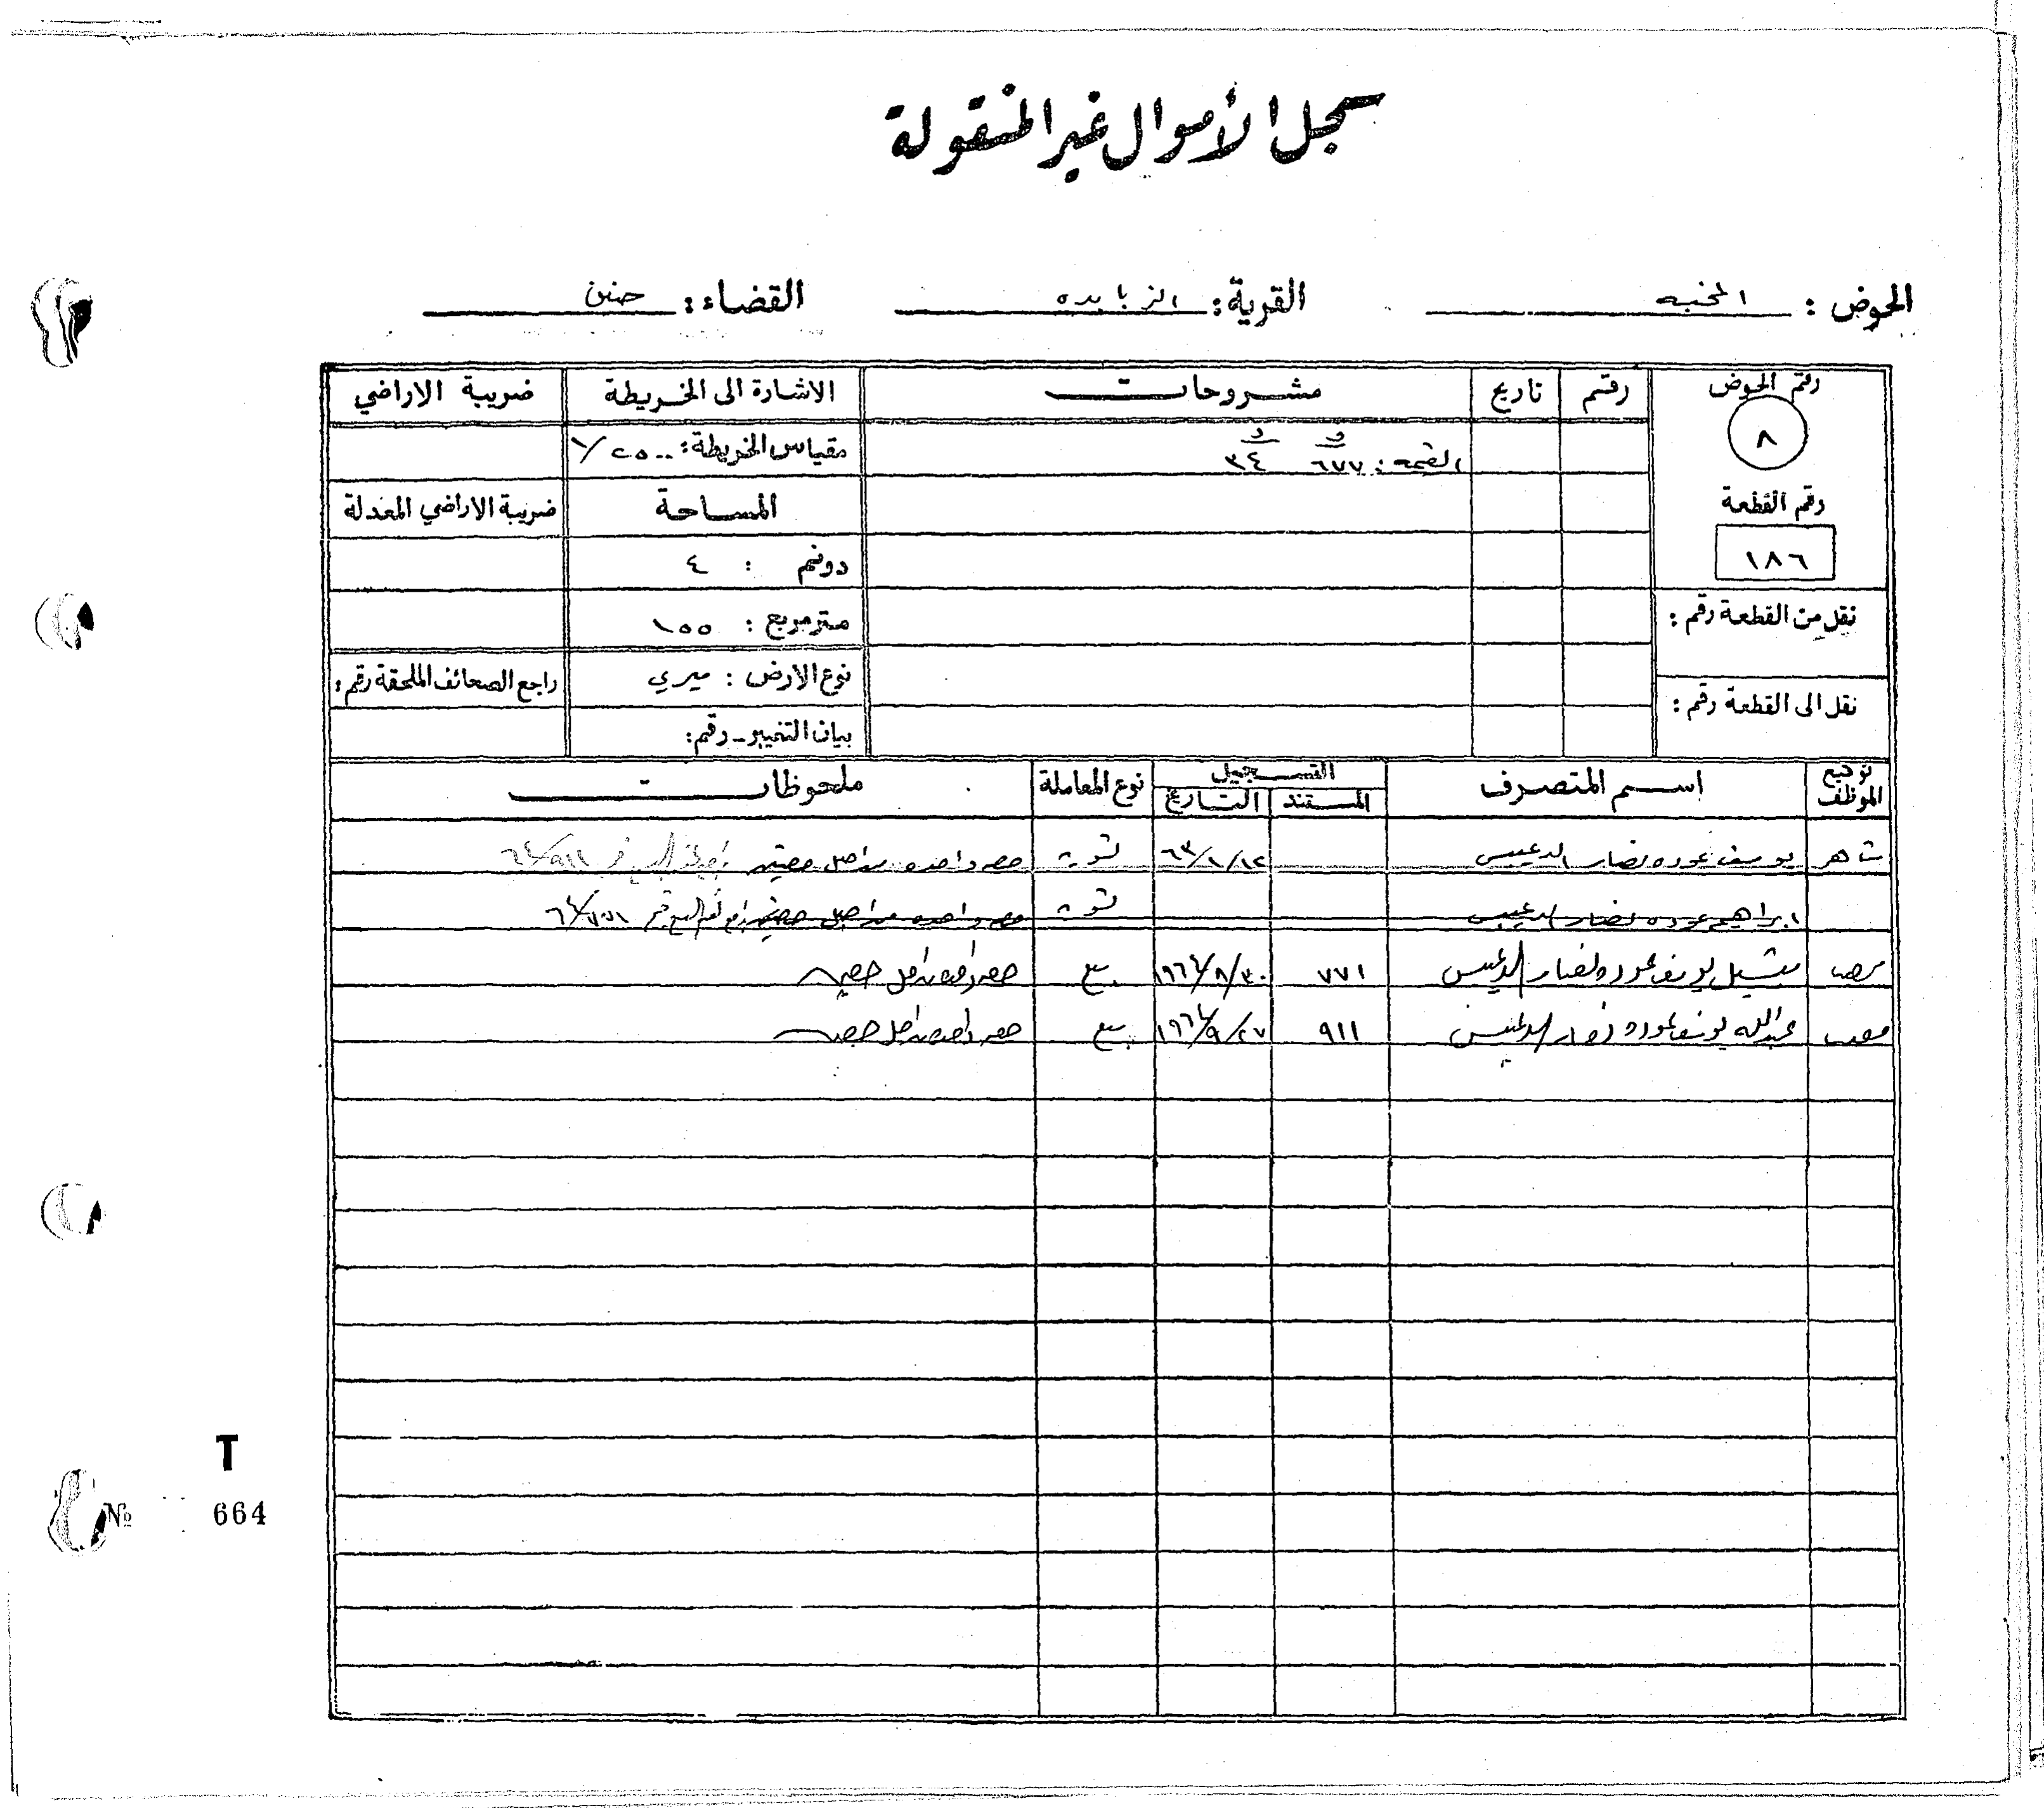 سجل الأموال غير المنقولة
الحوض : القرية : الزبابده القضاء : جنين
رقم الحوض رقم تاريخ مشروحات الاشارة الى الخريطة ضريبة الاراضي
٨ القيمة : ٦٧٧ ٣٤ مقياس الخريطة : ١/٢٥٠٠
رقم القطعة المساحة ضريبة الاراضي المعدلة
١٨٦ دونم : ٤
نقل من القطعة رقم : متر مربع : ١٥٥
نوع الارض : ميري راجع الصحائف الملحقة رقم :
نقل الى القطعة رقم : بيان التغيير - رقم :
توقيع الموظف اسم المتصرف التسجيل نوع المعاملة ملحوظات
المستند التاريخ
يوسف عوده نصار الدعيبس ٦٣/١/١٢ تسوية حصه واحده من اصل حصتين ٦٤/٩١١
ابراهيم عوده نصار الدعيبس تسوية حصه واحده من اصل حصتين ٦٤/٧٧١
ميشيل يوسف عوده نصار الدعيبس ٧٧١ ١٩٦٤/٨/٣٠ بيع حصه واحده من اصل حصتين
عبدالله يوسف عوده نصار الدعيبس ٩١١ ١٩٦٤/٩/٢٧ بيع حصه واحده من اصل حصتين
T
№ 664